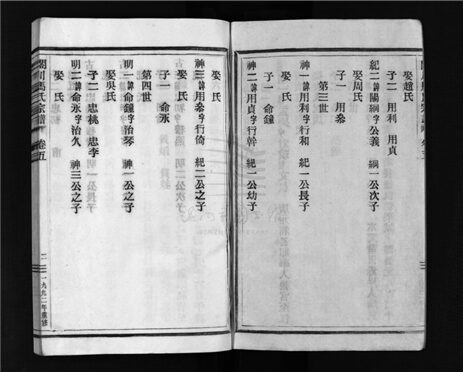 娶趙氏
子二 用利 用貞
紀二諱關綱字公義 綱一公次子
娶周氏
子一 用叅
第三世
神一諱用利字行和 紀一公長子
娶 氏
子一 命鐘
神二諱用貞字行幹 紀一公幼子
娶 氏
神三諱用叅字行倚 紀二公之子
娶 氏
子一 命永
第四世
明一諱命鐘字治琴 神一公之子
娶吳氏
子二 忠桃 忠李
明二諱命永字治久 神三公之子
娶 氏
卷五
二
一九九二年重修